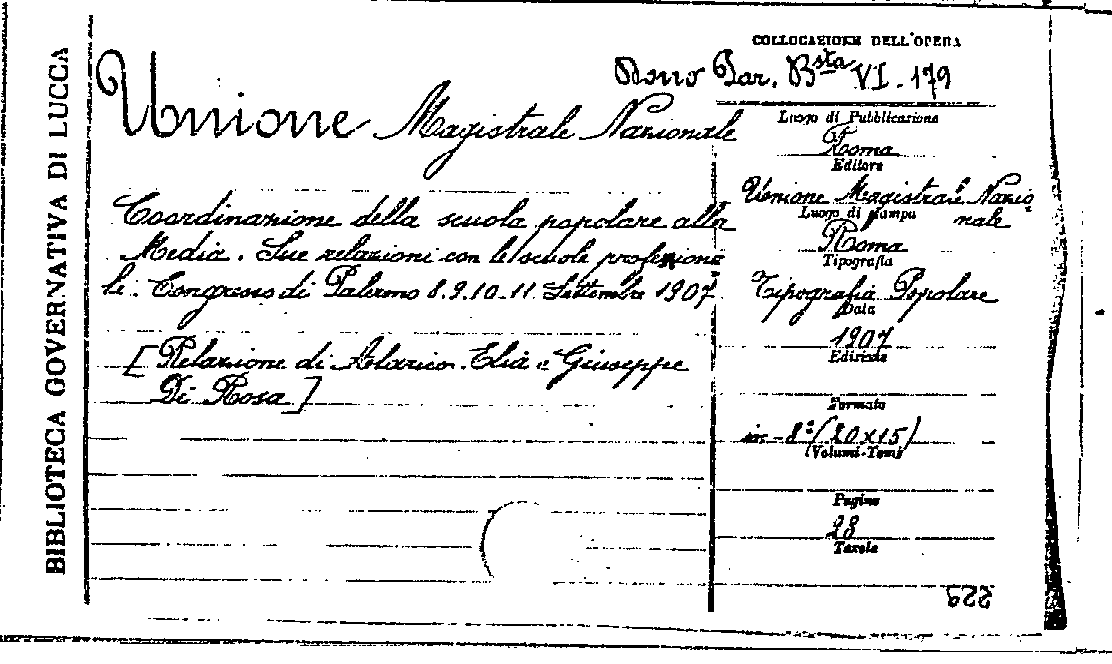 BIBLIOTECA GOVERNATIVA DI LUCCA
COLLOCAZIONE DELL'OPERA
Dono Par. Bsta VI. 179
Unione Magistrale Nazionale
Coordinazione della scuola popolare alla
Media. Sue relazioni con le scuole professiona
le. Congresso di Palermo 8.9.10-11. Settembre 1907
[Relazione di Alarico Elia e Giuseppe
Di Rosa]
Luogo di Pubblicazione
Roma
Editore
Unione Magistrale Nazio
nale
Luogo di stampa
Roma
Tipografia
Tipografia Popolare
Data
1907
Edizione
Formato
in-8° (20x15)
(Volumi-Tomi)
Pagine
28
Tavole
229